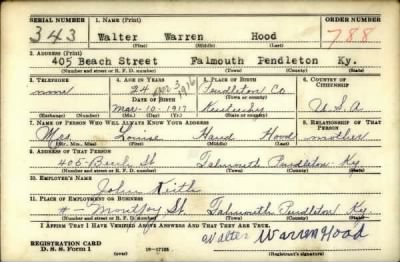 SERIAL NUMBER 1. NAME (Print) ORDER NUMBER
343 Walter Warren Hood 788
(First) (Middle) (Last)
2. ADDRESS (Print)
405 Beach Street Falmouth Pendleton Ky.
(Number and street or R. F. D. number) (Town) (County) (State)
3. TELEPHONE 4. AGE IN YEARS 5. PLACE OF BIRTH 6. COUNTRY OF CITIZENSHIP
none 24 Pendleton Co
DATE OF BIRTH (Town or county)
Mar-10-1917 Kentucky U.S.A
(Exchange) (Number) (Mo.) (Day) (Yr.) (State or country)
7. NAME OF PERSON WHO WILL ALWAYS KNOW YOUR ADDRESS 8. RELATIONSHIP OF THAT PERSON
Mrs Louise Hood mother
(Mr., Mrs., Miss) (First) (Middle) (Last)
9. ADDRESS OF THAT PERSON
405-Beach St Falmouth Pendleton Ky
(Number and street or R. F. D. number) (Town) (County) (State)
10. EMPLOYER'S NAME
John Keith
11. PLACE OF EMPLOYMENT OR BUSINESS
# - Montjoy St. Falmouth Pendleton Ky.
(Number and street or R. F. D. number) (Town) (County) (State)
I AFFIRM THAT I HAVE VERIFIED ABOVE ANSWERS AND THAT THEY ARE TRUE.
REGISTRATION CARD
D. S. S. Form 1 Walter Warren Hood
(Registrant's signature)